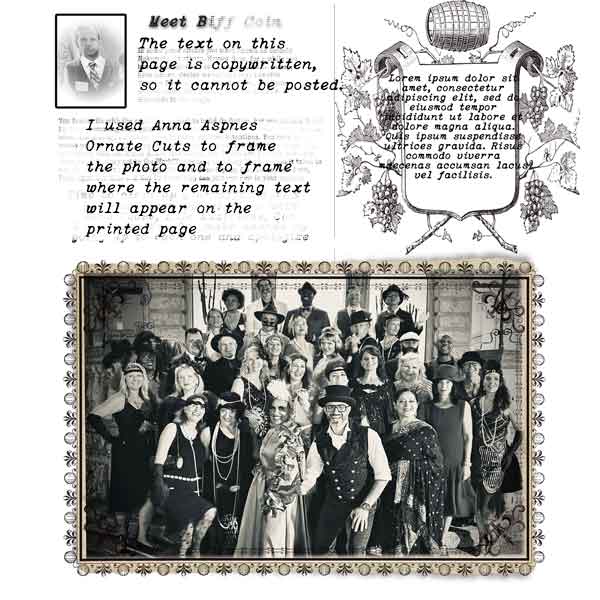 Meet Biff Coin
The text on this
page is copywritten,
so it cannot be posted.
I used Anna Aspnes
Ornate Cuts to frame
the photo and to frame
where the remaining text
will appear on the
printed page
Lorem ipsum dolor sit
amet, consectetur
adipiscing elit, sed do
eiusmod tempor
incididunt ut labore et
dolore magna aliqua.
Quis ipsum suspendisse
ultrices gravida. Risus
commodo viverra
maecenas accumsan lacus
vel facilisis.